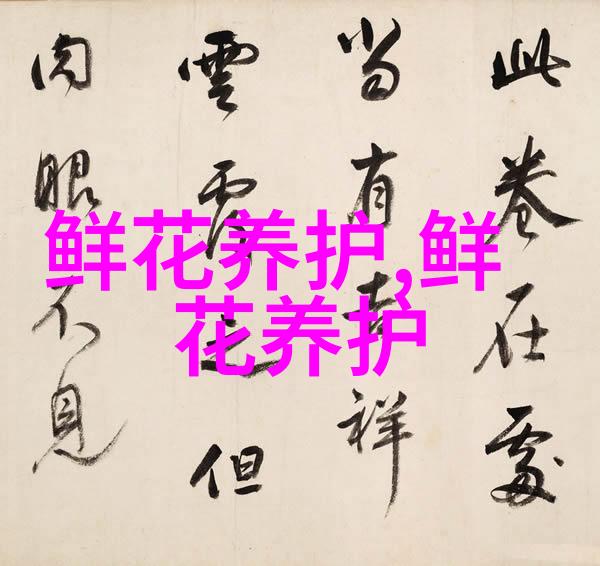 鲜花养护,鲜
花养护
此卷在處
当有吉祥
雲覆之但
肉眼不見